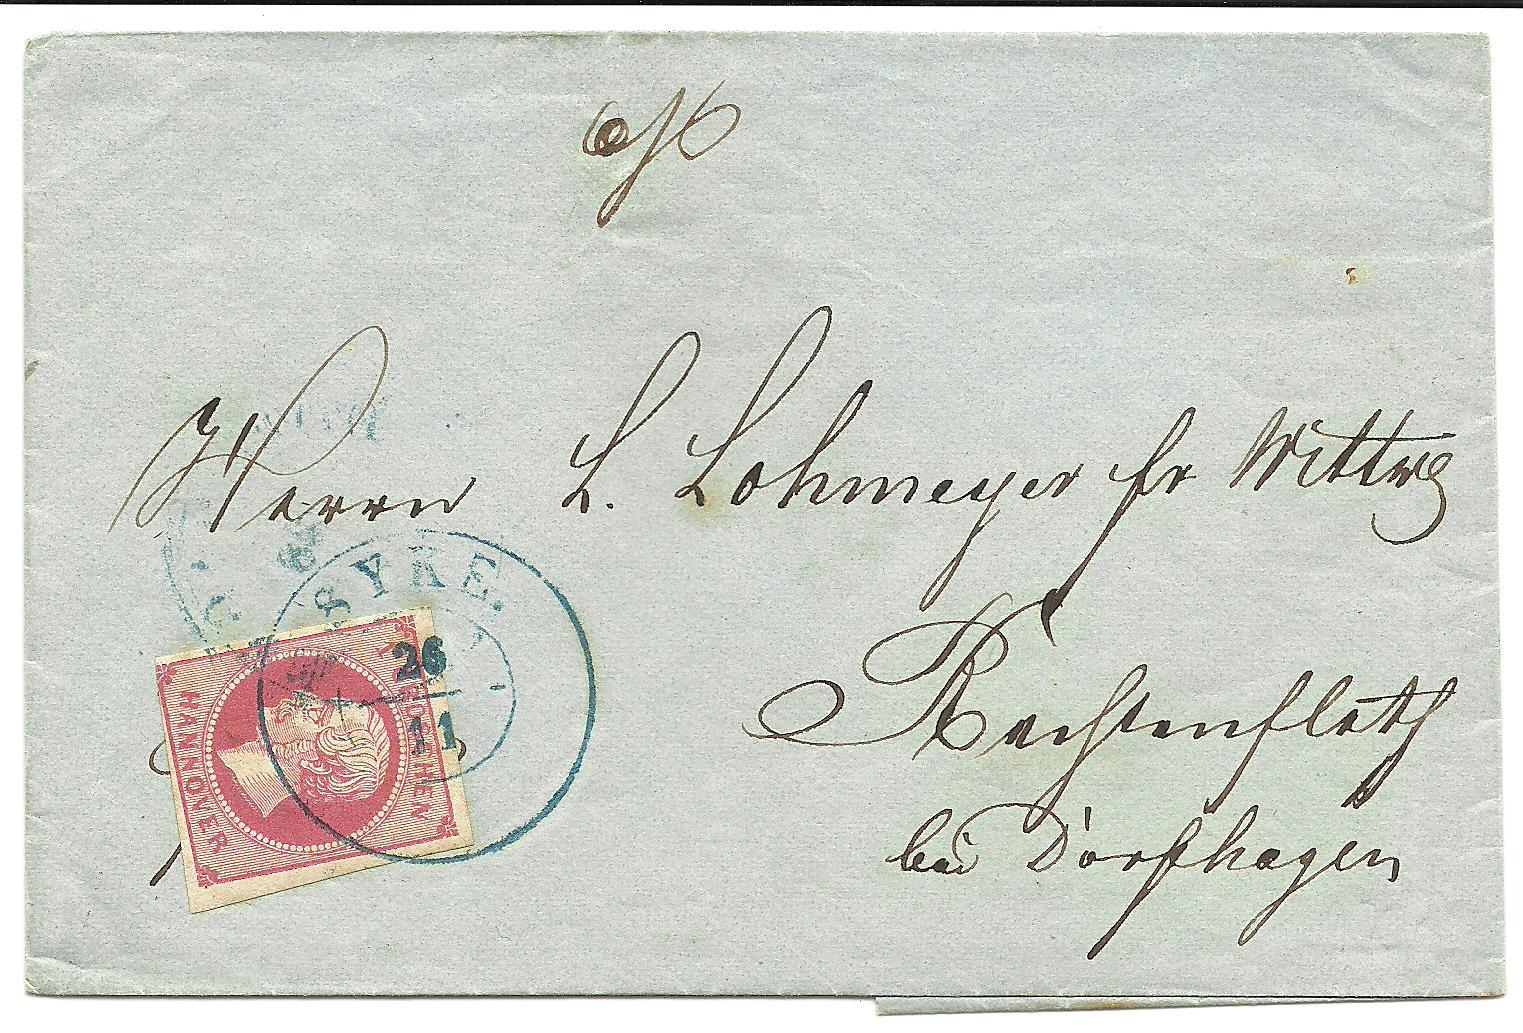 Herrn L. Lohmeyer fr Wittwe
Rechtenfleth
bei Dorfhagen
SYKE.
26
11
HANNOVER
GROSCHEN